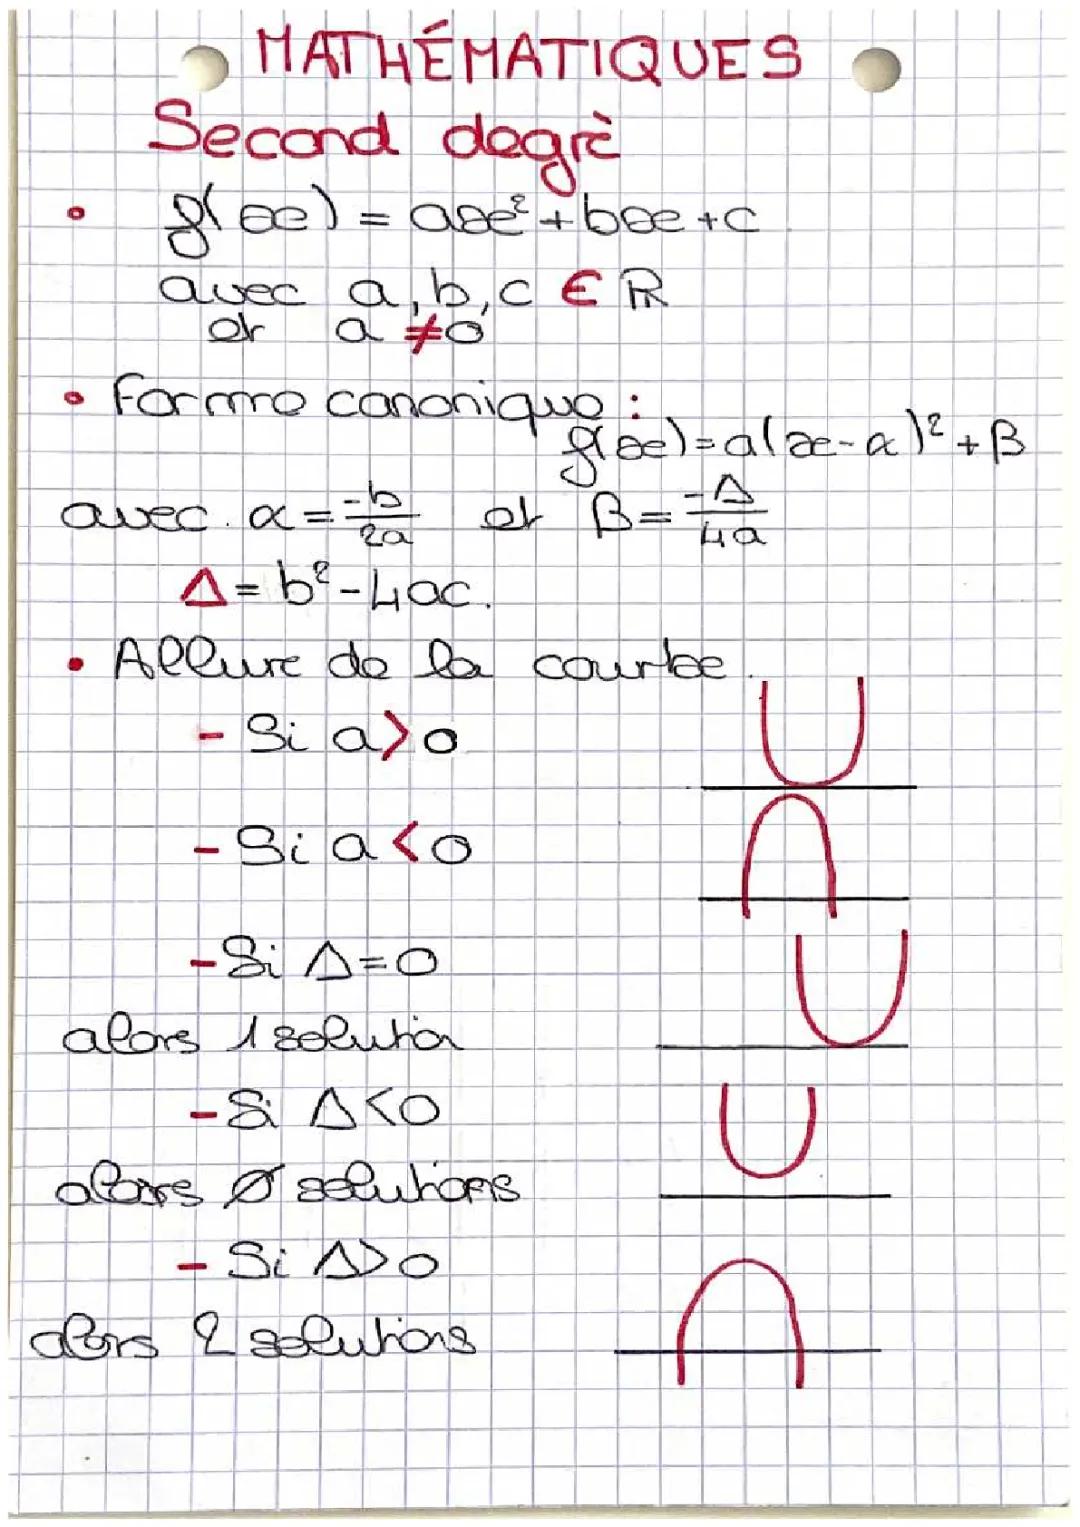 MATHÉMATIQUES
Second degrè
• f(x) = ax² + bx + c
avec a, b, c ∈ ℝ
et a ≠ 0
• Forme canonique :
f(x) = a(x - α)² + β
avec. α = -b/2a et β = -Δ/4a
Δ = b² - 4ac.
• Allure de la courbe.
- Si a > 0
- Si a < 0
- Si Δ = 0
alors 1 solution
- Si Δ < 0
alors Ø solutions
- Si Δ > 0
alors 2 solutions